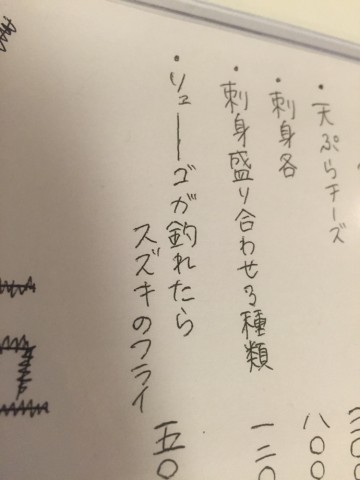 ・天ぷらチーズ
・刺身各 八〇〇
・刺身盛り合わせ3種類 一三〇
・リューゴが釣れたら
スズキのフライ 五〇